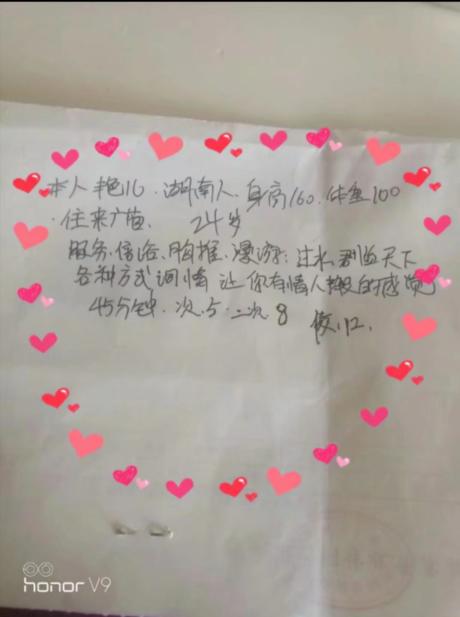 本人艳16.湖南人.身高160.体重100
24岁
服务、浴、胸推、漫游:过水、君临天下
各种方式调情让你有情人般的感觉
45分钟.次.5.二次8 12.
honor V9